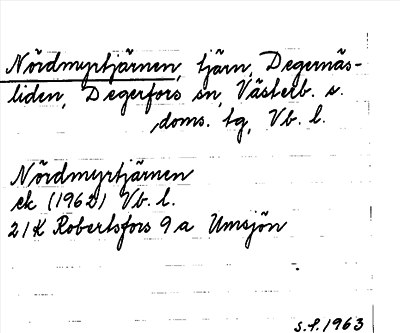 Nördmyrtjärnen, tjärn, Degernäs-
liden, Degerfors sn, Västerb. s.
doms. tg, Vb. l.
Nördmyrtjärnen
ek (1962) Vb. l.
21K Robertsfors 9a Umsjön
s.f. 1963